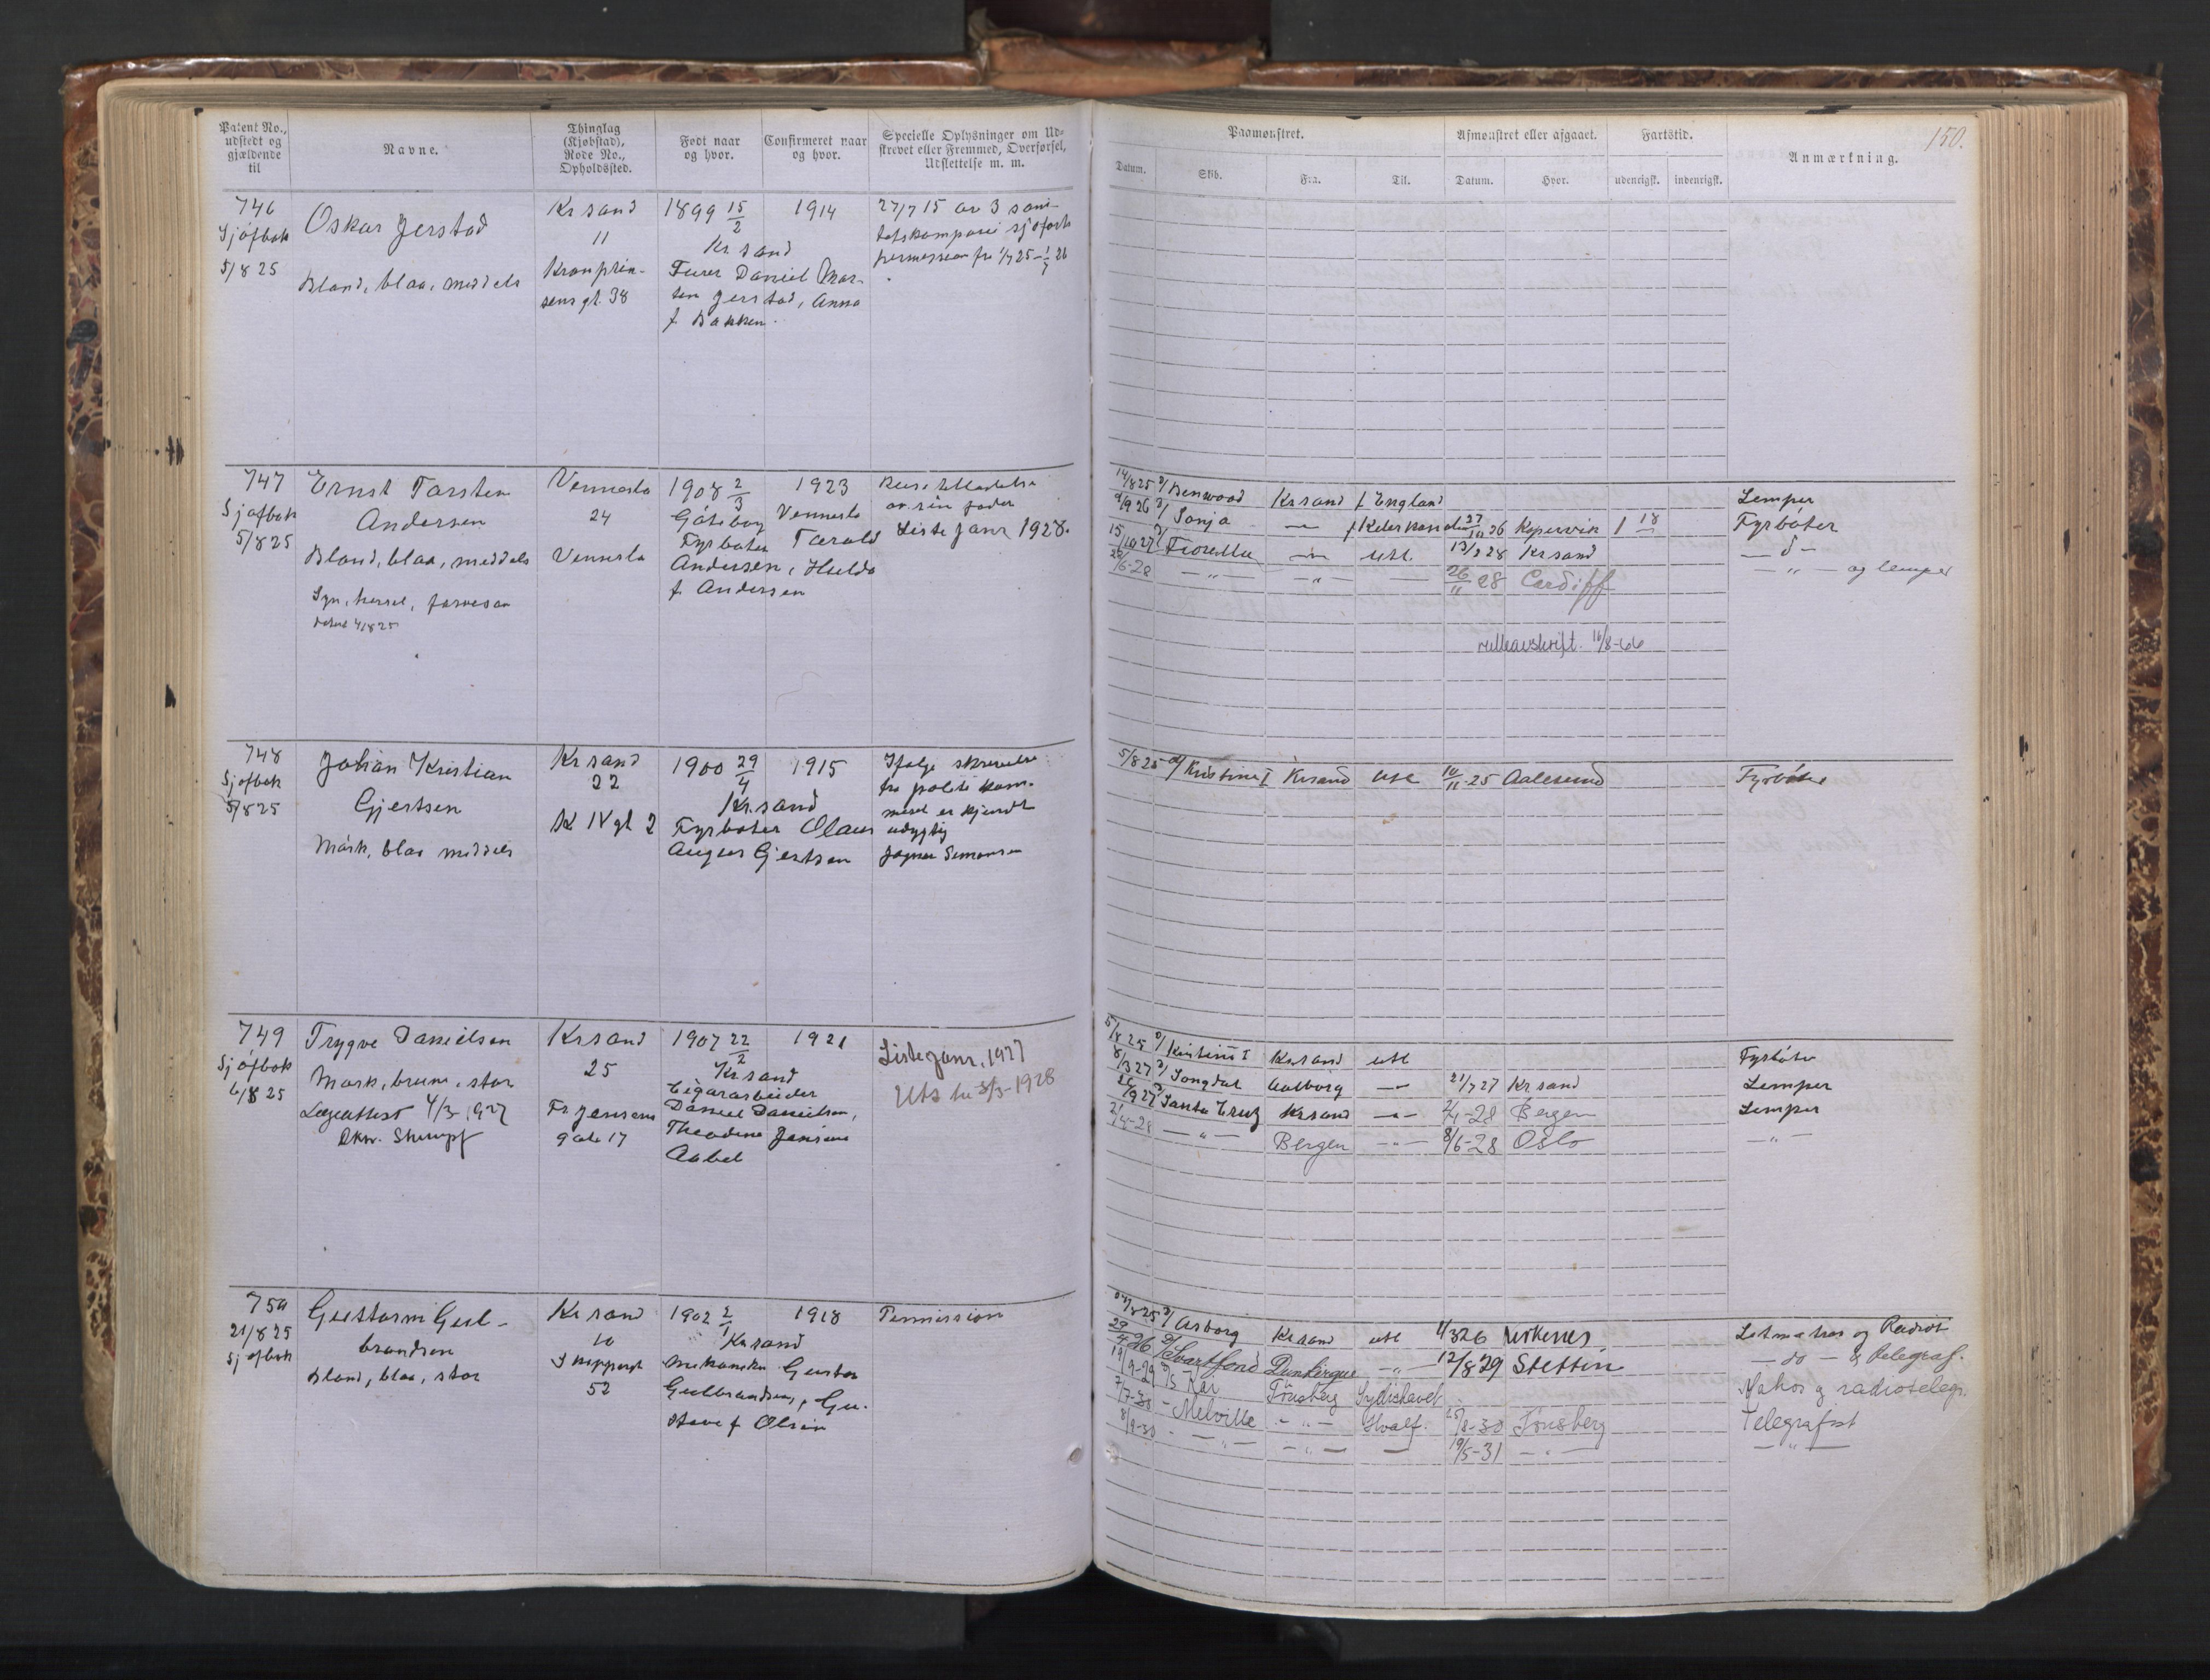 Patent No., udstedt og gjældende til
Navne.
Thinglag (Kjøbstad), Rode No., Opholdssted.
Født naar og hvor.
Confirmeret naar og hvor.
Specielle Oplysninger om Udskrevet eller Fremmed, Overførsel, Udslettelse m. m.
Paamønstret.
Afmønstret eller afgaaet.
Fartstid.
Anmærkning.
150.
Datum.
Skib.
Fra.
Til.
Datum.
Hvor.
udenrigsk.
indenrigsk.
746
Sjøfbok
5/8 25
Oskar Jerstad
Blond, blaa, middels
Kr sand
11
Kronprin-
sens gt. 38
1899 15/2
Kr sand
Furer Daniel Mar-
ten Jerstad, Anna
f. Bakken
1914
27/7 15 av 3 sani-
tetskompani sjøforts
permission fra 1/7 25 - 1/7 26
747
Sjøfbok
5/8 25
Ernst Torsten
Andersen
Blond, blaa, middels
Syn, hørsel, farvesan
4/8 25
Vennesla
24
Vennesla
1908 2/3
Göteborg
Fyrbøter Tarald
Andersen, Hulda
f. Andersen
1923
Vennesla
av sin fader
Liste Janr 1928.
14/8 25 D/ Benwood Kr sand f England Lemper
9/9 26 D/ Sonja —"— 27/10 26 Kopervik 1 18 Fyrbøter
15/10 27 D/ Fiorella —"— utl. 13/2 28 Kr sand — d —
—"— —"— — 26/11 28 Cardiff —"— og lemper
rulleavskrift. 16/8-66
748
Sjøfbok
5/8 25
Johan Kristian
Gjertsen
Mørk, blaa middels
Kr sand
22
K IV gt 2
1900 29/4
Kr. sand
Fyrbøter Olaus
August Gjertsen
1915
Ifølge skrivelse
fra politikam-
meret er kjendt
udygtig
Simonsen
5/8 25 D/ Kristine I Kr sand utl 10/11 25 Aalesund Fyrbøter
749
Sjøfbok
6/8 25
Trygve Danielsen
Mørk, brune, stor
Lægeattest 4/3 1927
Dkr. Stumpf
Kr sand
25
Fr. Jansens
gate 17
1907 22/2
Kr sand
Cigararbeider
Daniel Danielsen,
Theodine Jensine
Aabel
1921
Liste Janr. 1927
3/3-1928
5/8 25 D/ Kristine I Kr sand utl Fyrbøter
8/3 27 D/ Songdal Aalborg —"— 21/7 27 Kr sand Lemper
D/ Santa Cruz Kr sand —"— 2/4-28 Bergen Lemper
2/4-28 —"— Bergen —"— 8/6-28 Oslo —"—
750
21/8 25
Sjøfbok
Guttorm Gul-
brandsen
Blond, blaa, stor
Kr sand
10
Skippergt
52
1902 2/1
Kr sand
Mekaniker Gustav
Gulbrandsen, Gu-
stava f Olsen
1918
Permission
D/ Asborg Kr sand utl 1/3 26 Kirkenes Letmatros og Radiot
29/4 26 D/ Svartfond Dunkerque —"— 12/8 29 Stettin — do — & telegraf.
19/9-29 D/s Kai Tønsberg Sydishavet Matros & radiotelegr.
7/7-30 - Melville —"— Hvalf. 25/8-30 Tønsberg Telegrafist
8/9-30 —"— —"— — 19/5-31 —"— —"—